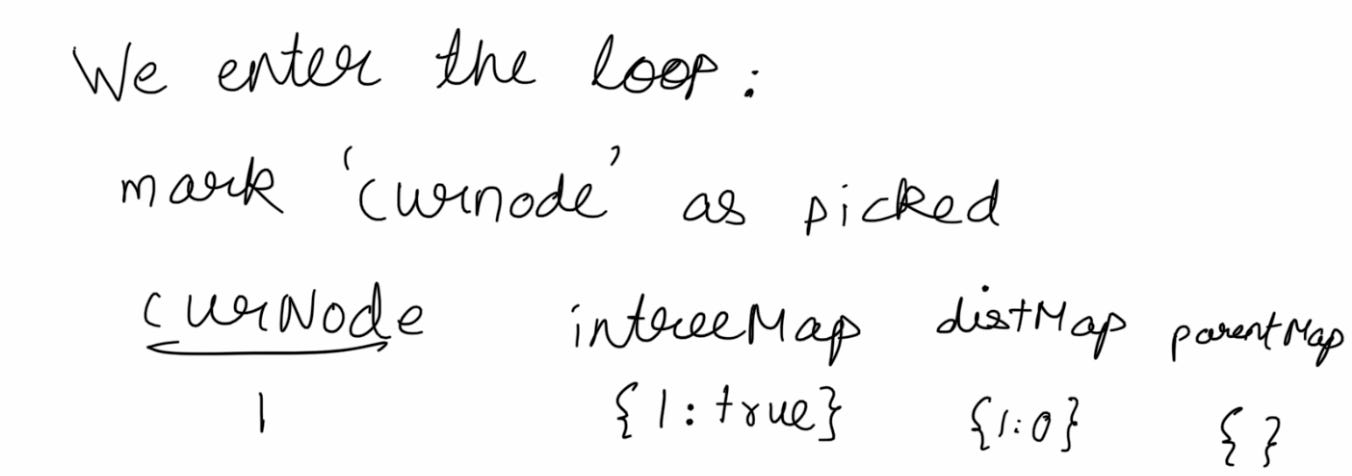 We enter the loop :
mark 'curnode' as picked
curNode intreeMap distMap parentMap
1 {1: true} {1:0} { }